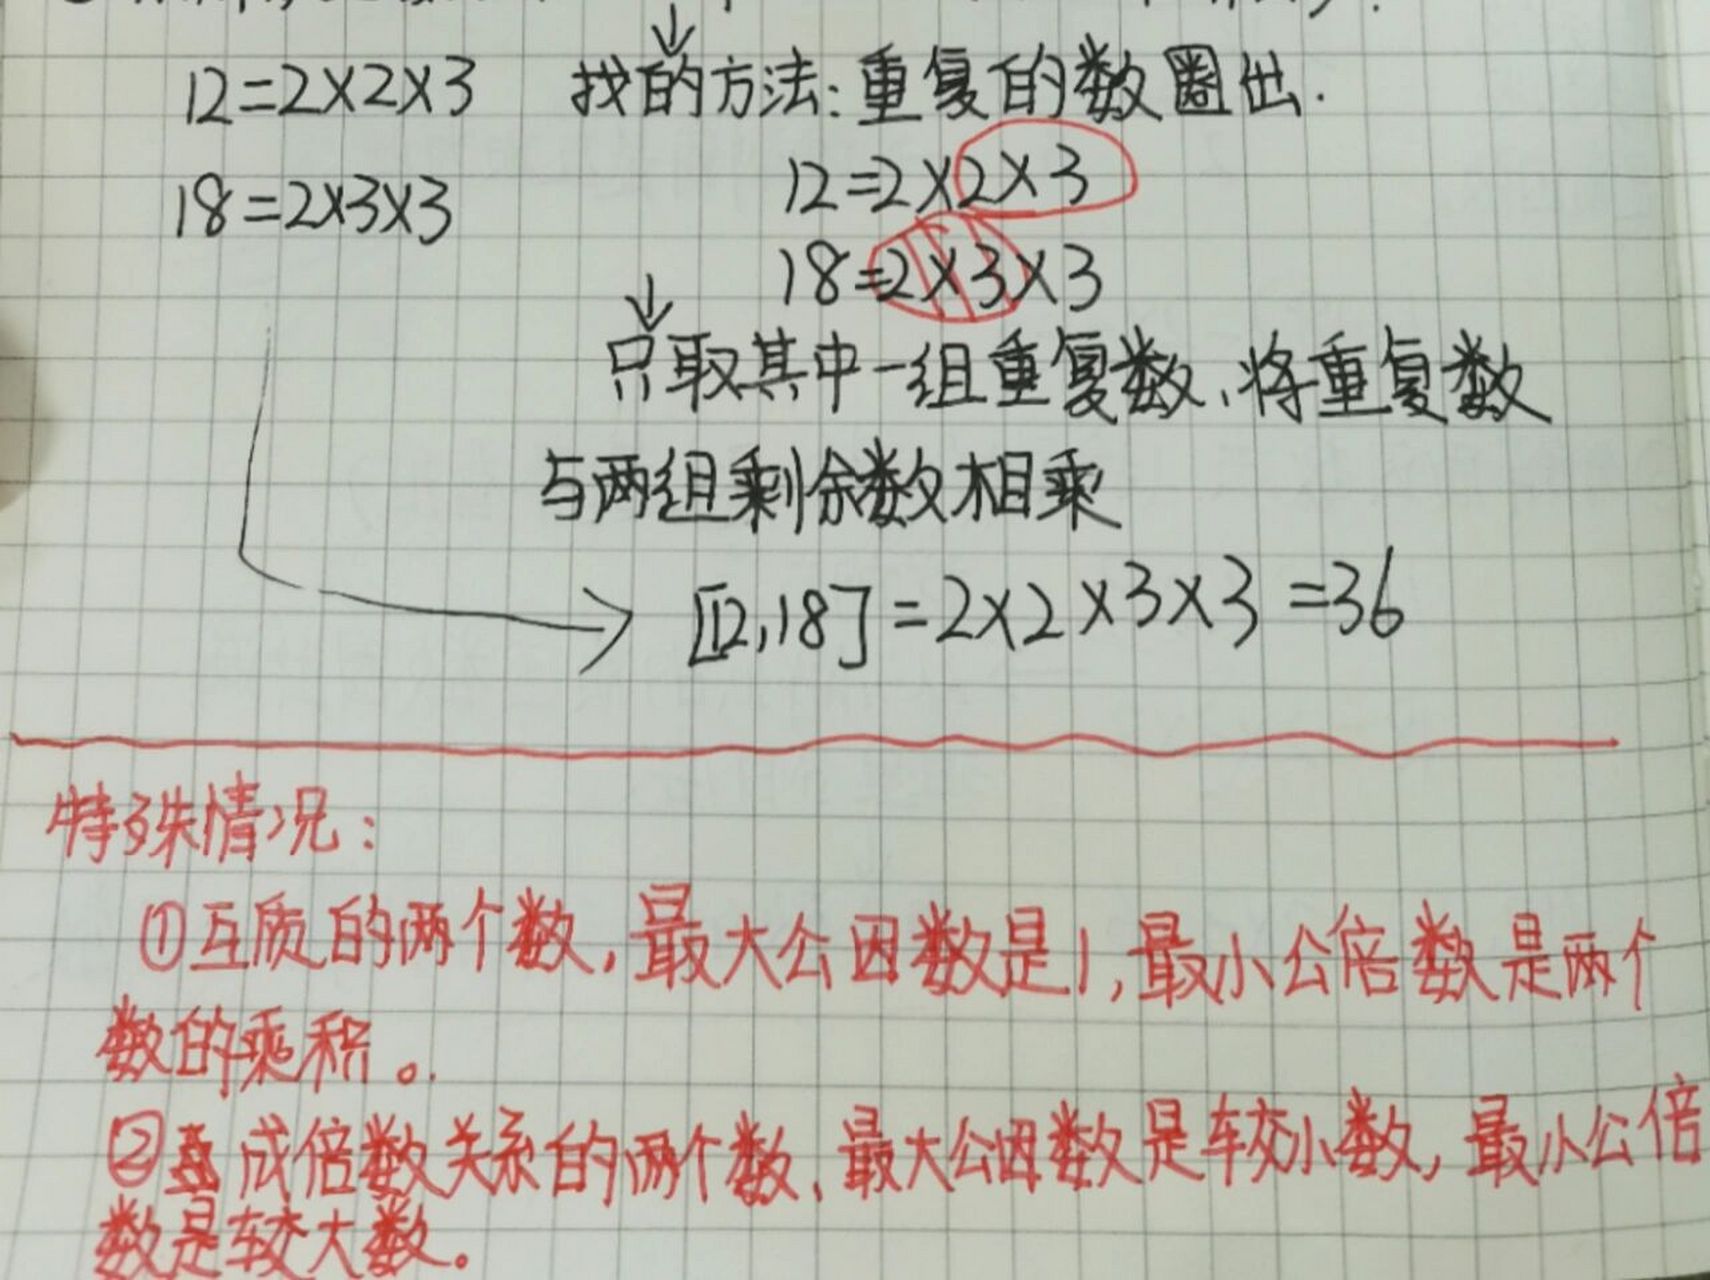 12=2×2×3 找的方法:重复的数圈出.
12=2×2×3
18=2×3×3
18=2×3×3
只取其中一组重复数,将重复数
与两组剩余数相乘
[12,18]=2×2×3×3=36
特殊情况:
①互质的两个数,最大公因数是1,最小公倍数是两个
数的乘积。
②成倍数关系的两个数,最大公因数是较小数,最小公倍
数是较大数。